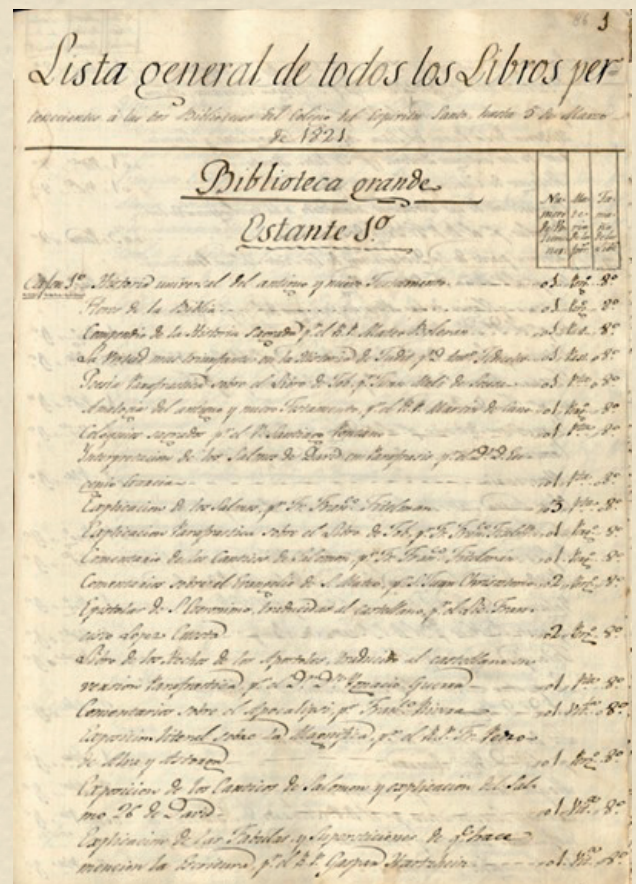 86 1
Lista general de todos los Libros per-
tenecientes á las dos Bibliotecas del Colegio del Espiritu Santo, hasta 5 de Marzo
de 1821.
Biblioteca grande
Estante 1º
Cajon 1º Historia universal del antiguo y nuevo Testamento 1 8º
Flores de la Biblia 1 8º
Compendio de la Historia Sagrada pr. el R.P. Mateo 1 8º
La mas triunfante en la Historia de pr. 1 8º
Poesia Parafrastica sobre el Libro de Job, pr. de 1 8º
Analogia del antiguo y nuevo Testamento, pr. el R.P. Martin de Cano 1 8º
Coloquios sagrados pr. el P. Santiago 1 8º
Interpretacion de los Salmos de David en Parafrasis pr. el Dr. D. Eu-
genio Gracia 1 8º
Explicacion de los Salmos, pr. Fr. Franco. Titelman 3 8º
Explicacion Parafrastica sobre el Libro de Job, pr. Fr. Franco. 1 8º
Comentario de los Canticos de Salomon, pr. Fr. Franco. Titelman 1 8º
Comentarios sobre el Evangelio de S. Mateo, pr. S. Juan 2 8º
Epistolas de S. Geronimo, traducidas al castellano, pr. el Lic. Fran-
cisco Lopez Cuesta 2 8º
Libro de los Hechos de los Apostoles, traducido al castellano en
version Parafrastica, pr. el Dr. Dn. Ignacio Guerra 1 8º
Comentarios sobre el Apocalipsi, pr. Franco. Rivera 1 8º
Exposicion literal sobre la Magnifica, pr. el R.P. Fr. Pedro
de Alva y Astorga 1 8º
Exposicion de los Canticos de Salomon y explicacion del Sal-
mo 26 de David 1 8º
Explicacion de las Fabulas y Supersticiones de qe. hace
mencion la Escritura, pr. el R.P. Gaspar 1 8º